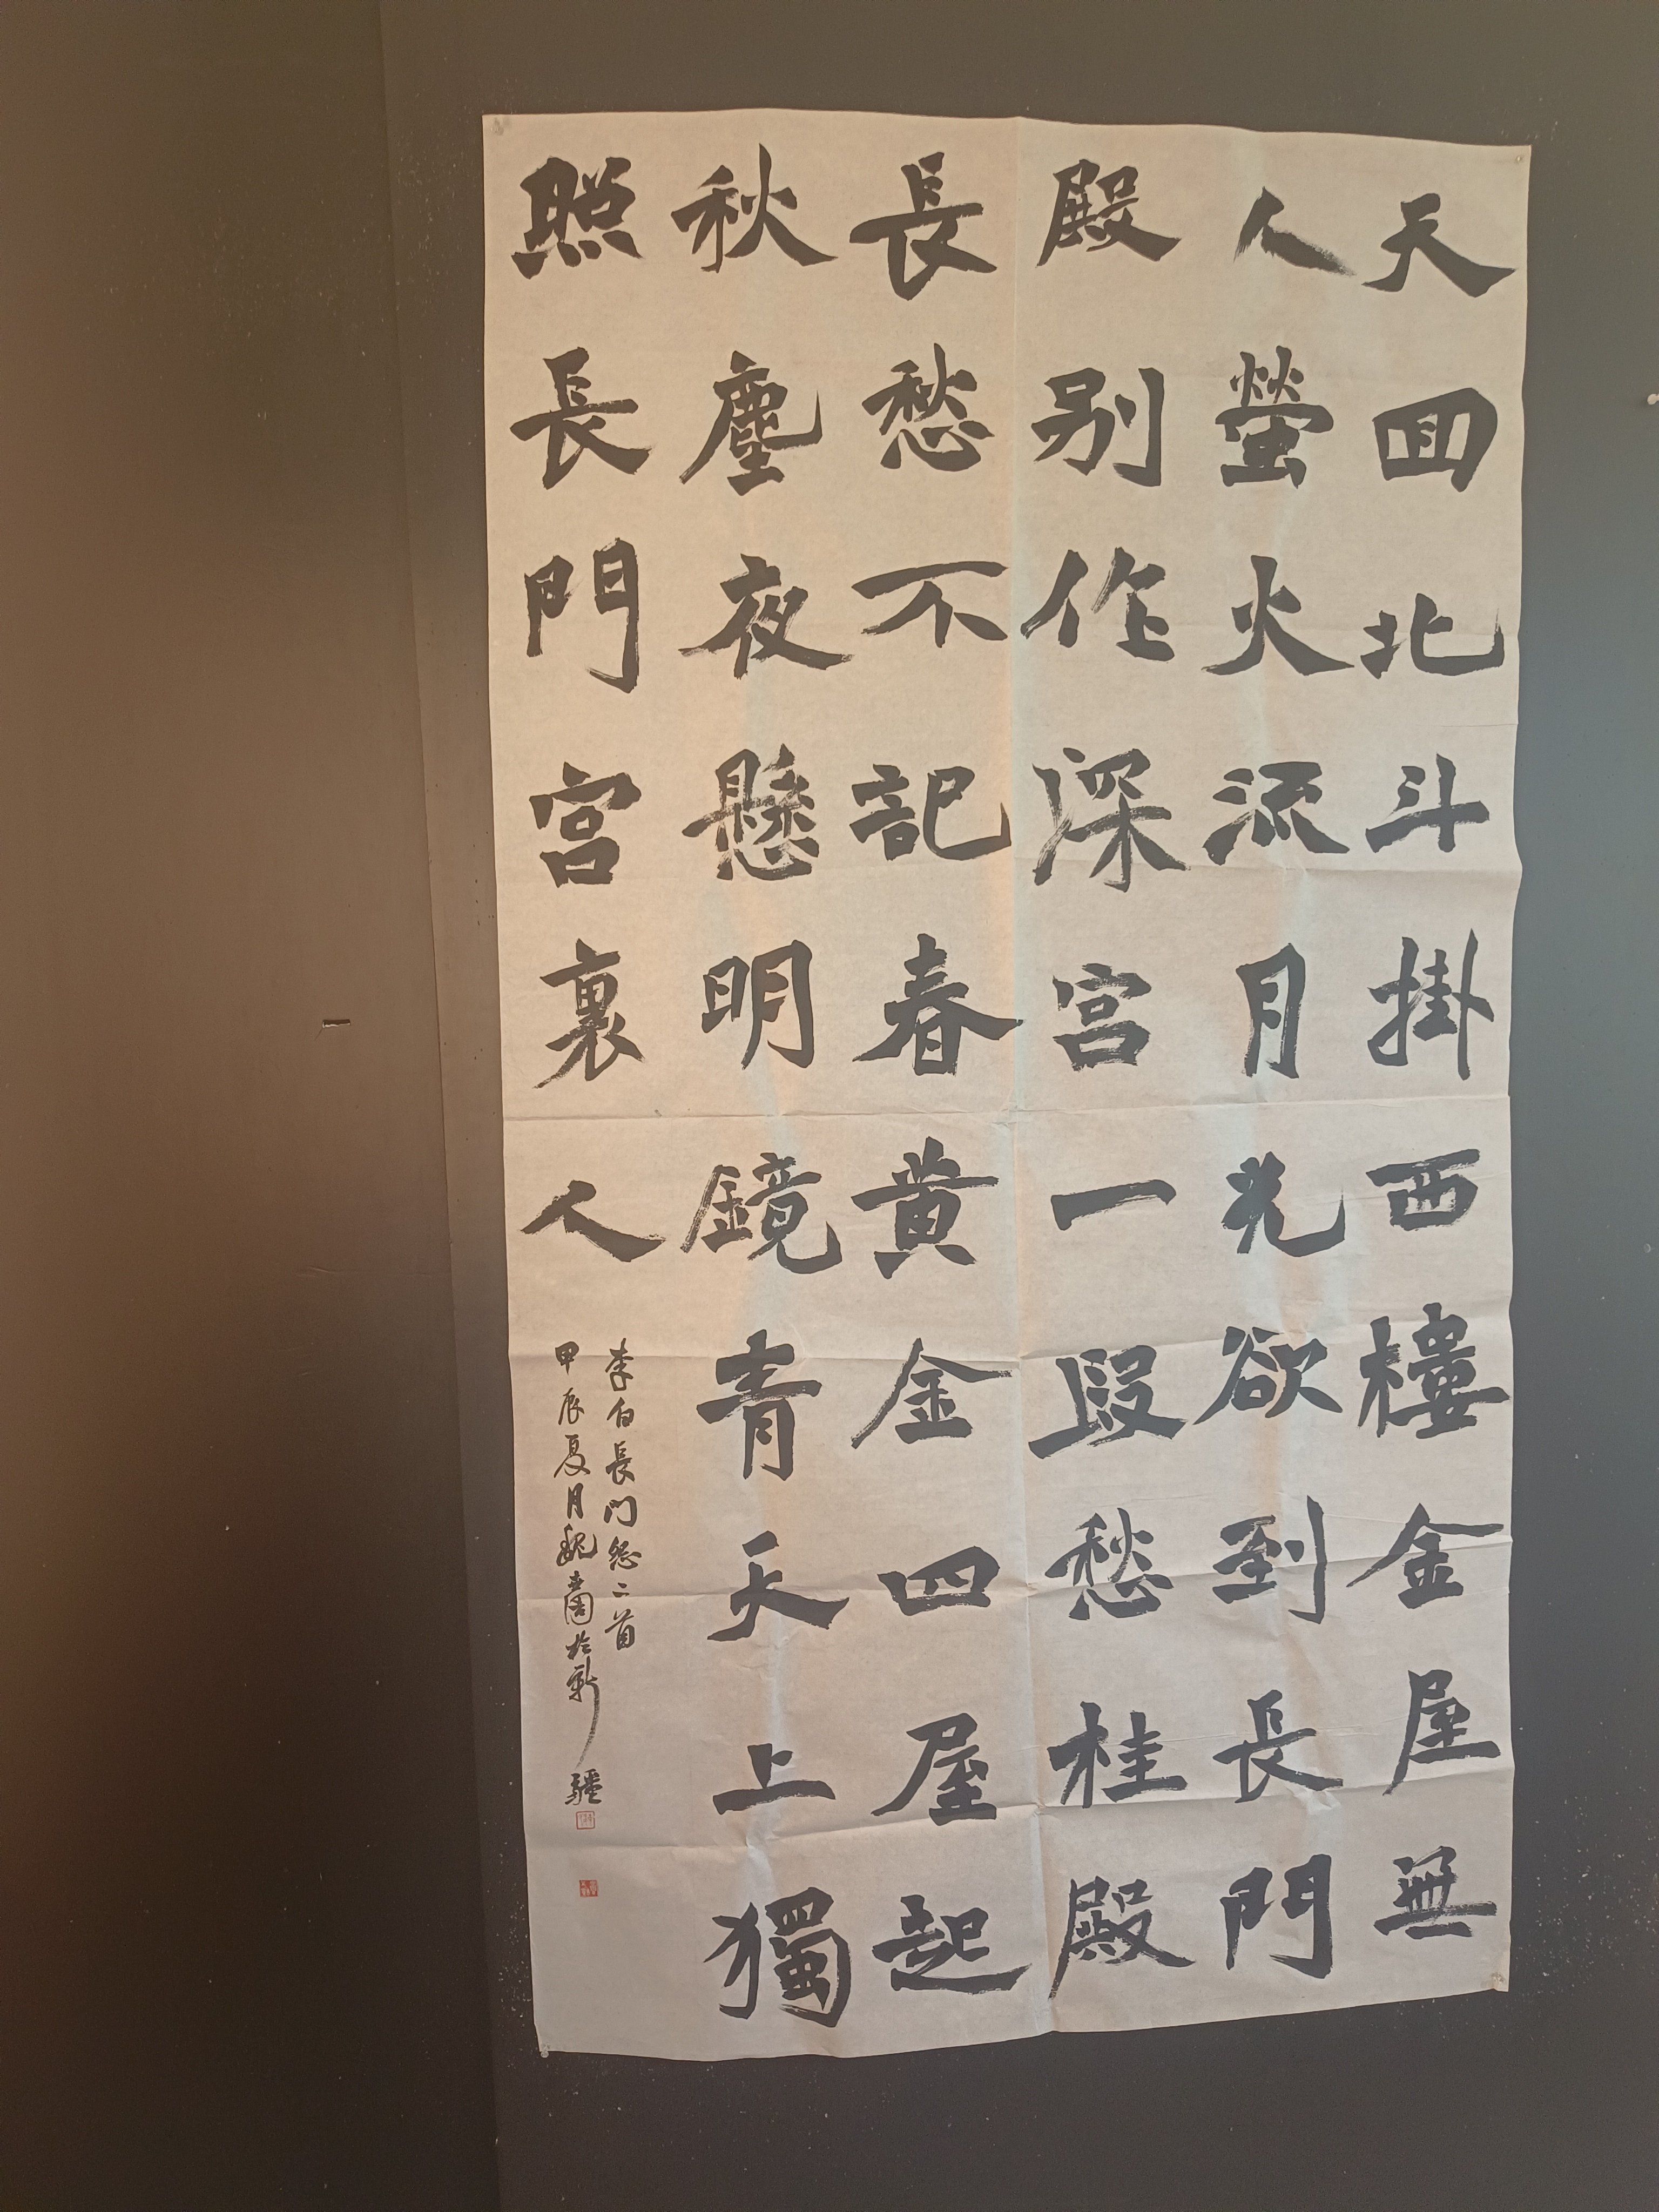 天回北斗掛西樓金屋無
人螢火流月光欲到長門
殿别作深宫一段愁桂殿
長愁不記春黄金四屋起
秋塵夜懸明鏡青天上獨
照長門宫裏人
李白長門怨二首
甲辰夏月魏於新疆